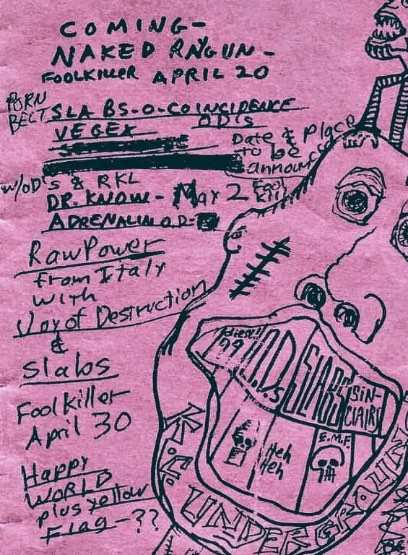 COMING-
NAKED RAYGUN-
FOOLKILLER APRIL 20
PORN
BELT
SLABS-O-COINCIDENCE
VEGEX
O.D.'s
Date & Place
to be
announced
w/OD's & RKL
DR. KNOW- May 2
Fool
Kill
ADRENALIN O.D.-
Raw Power
from Italy
with
Joy of Destruction
&
Slabs
Foolkiller
April 30
Happy
WORLD
plus Yellow
Flag-??
O.D.s
SLABS
SIN-
CLAIRS
Heh
Heh
E.M.F
K.C. UNDERGROUND